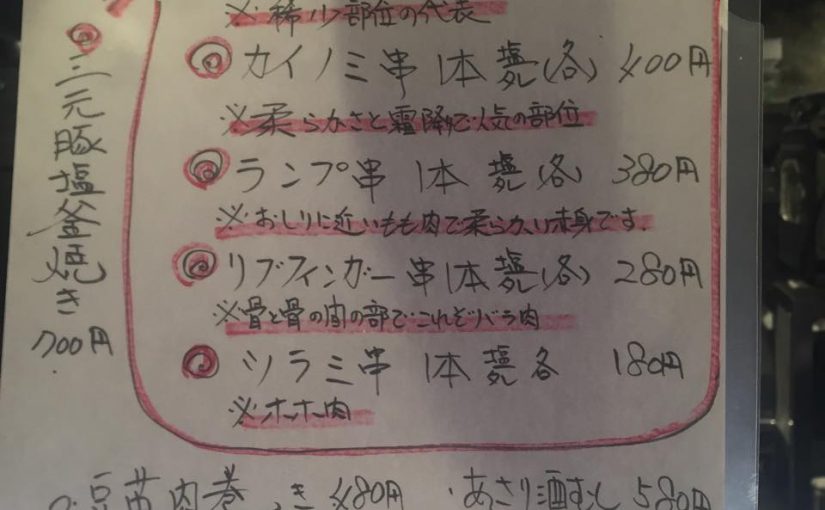 三元豚塩釜焼き
700円
※稀少部位の代表
カイノミ串 1本 (各) 400円
※柔らかさと霜降で人気の部位
ランプ串 1本 (各) 380円
※おしりに近いもも肉で柔らかい赤身です。
リブフィンガー串 1本 (各) 280円
※骨と骨の間の部でこれぞバラ肉
ツラミ串 1本 各 180円
※ホホ肉
豆苗肉巻き 480円
・あさり酒むし 580円